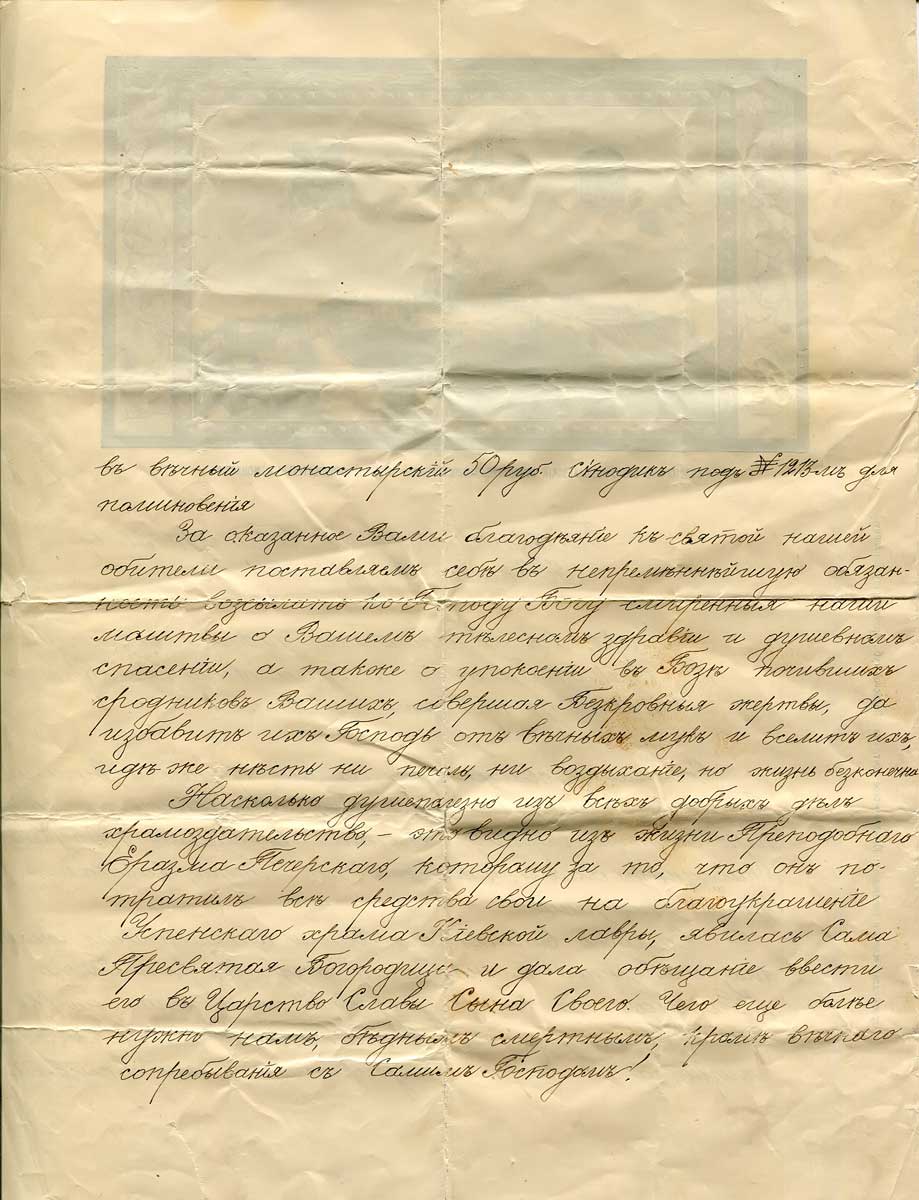 въ вѣчный монастырскій 50 руб. сѵнодикъ подъ № 1213-мъ для
поминовенія
За оказанное Вами благодѣяніе къ святой нашей
обители поставляемъ себѣ въ непремѣннѣйшую обязан-
ность возсылать ко Господу Богу смиренныя наши
молитвы о Вашемъ тѣлесномъ здравіи и душевномъ
спасеніи, а также о упокоеніи въ Бозѣ почившихъ
сродниковъ Вашихъ, совершая Безкровныя жертвы, да
избавитъ ихъ Господь отъ вѣчныхъ мукъ и вселитъ ихъ,
идѣ же нѣсть ни печаль, ни воздыханіе, но жизнь безконечна.
Насколько душеполезно изъ всѣхъ добрыхъ дѣлъ
храмоздательство, – это видно изъ жизни Преподобнаго
Еразма Печерскаго, которому за то, что онъ по-
тратилъ всѣ средства свои на благоукрашеніе
Успенскаго храма Кіевской лавры, явилась Сама
Пресвятая Богородица и дала обѣщаніе ввести
его въ Царство Славы Сына Своего. Чего еще болѣе
нужно намъ, бѣднымъ смертнымъ, кромѣ вѣчнаго
сопребыванія съ Самимъ Господомъ!